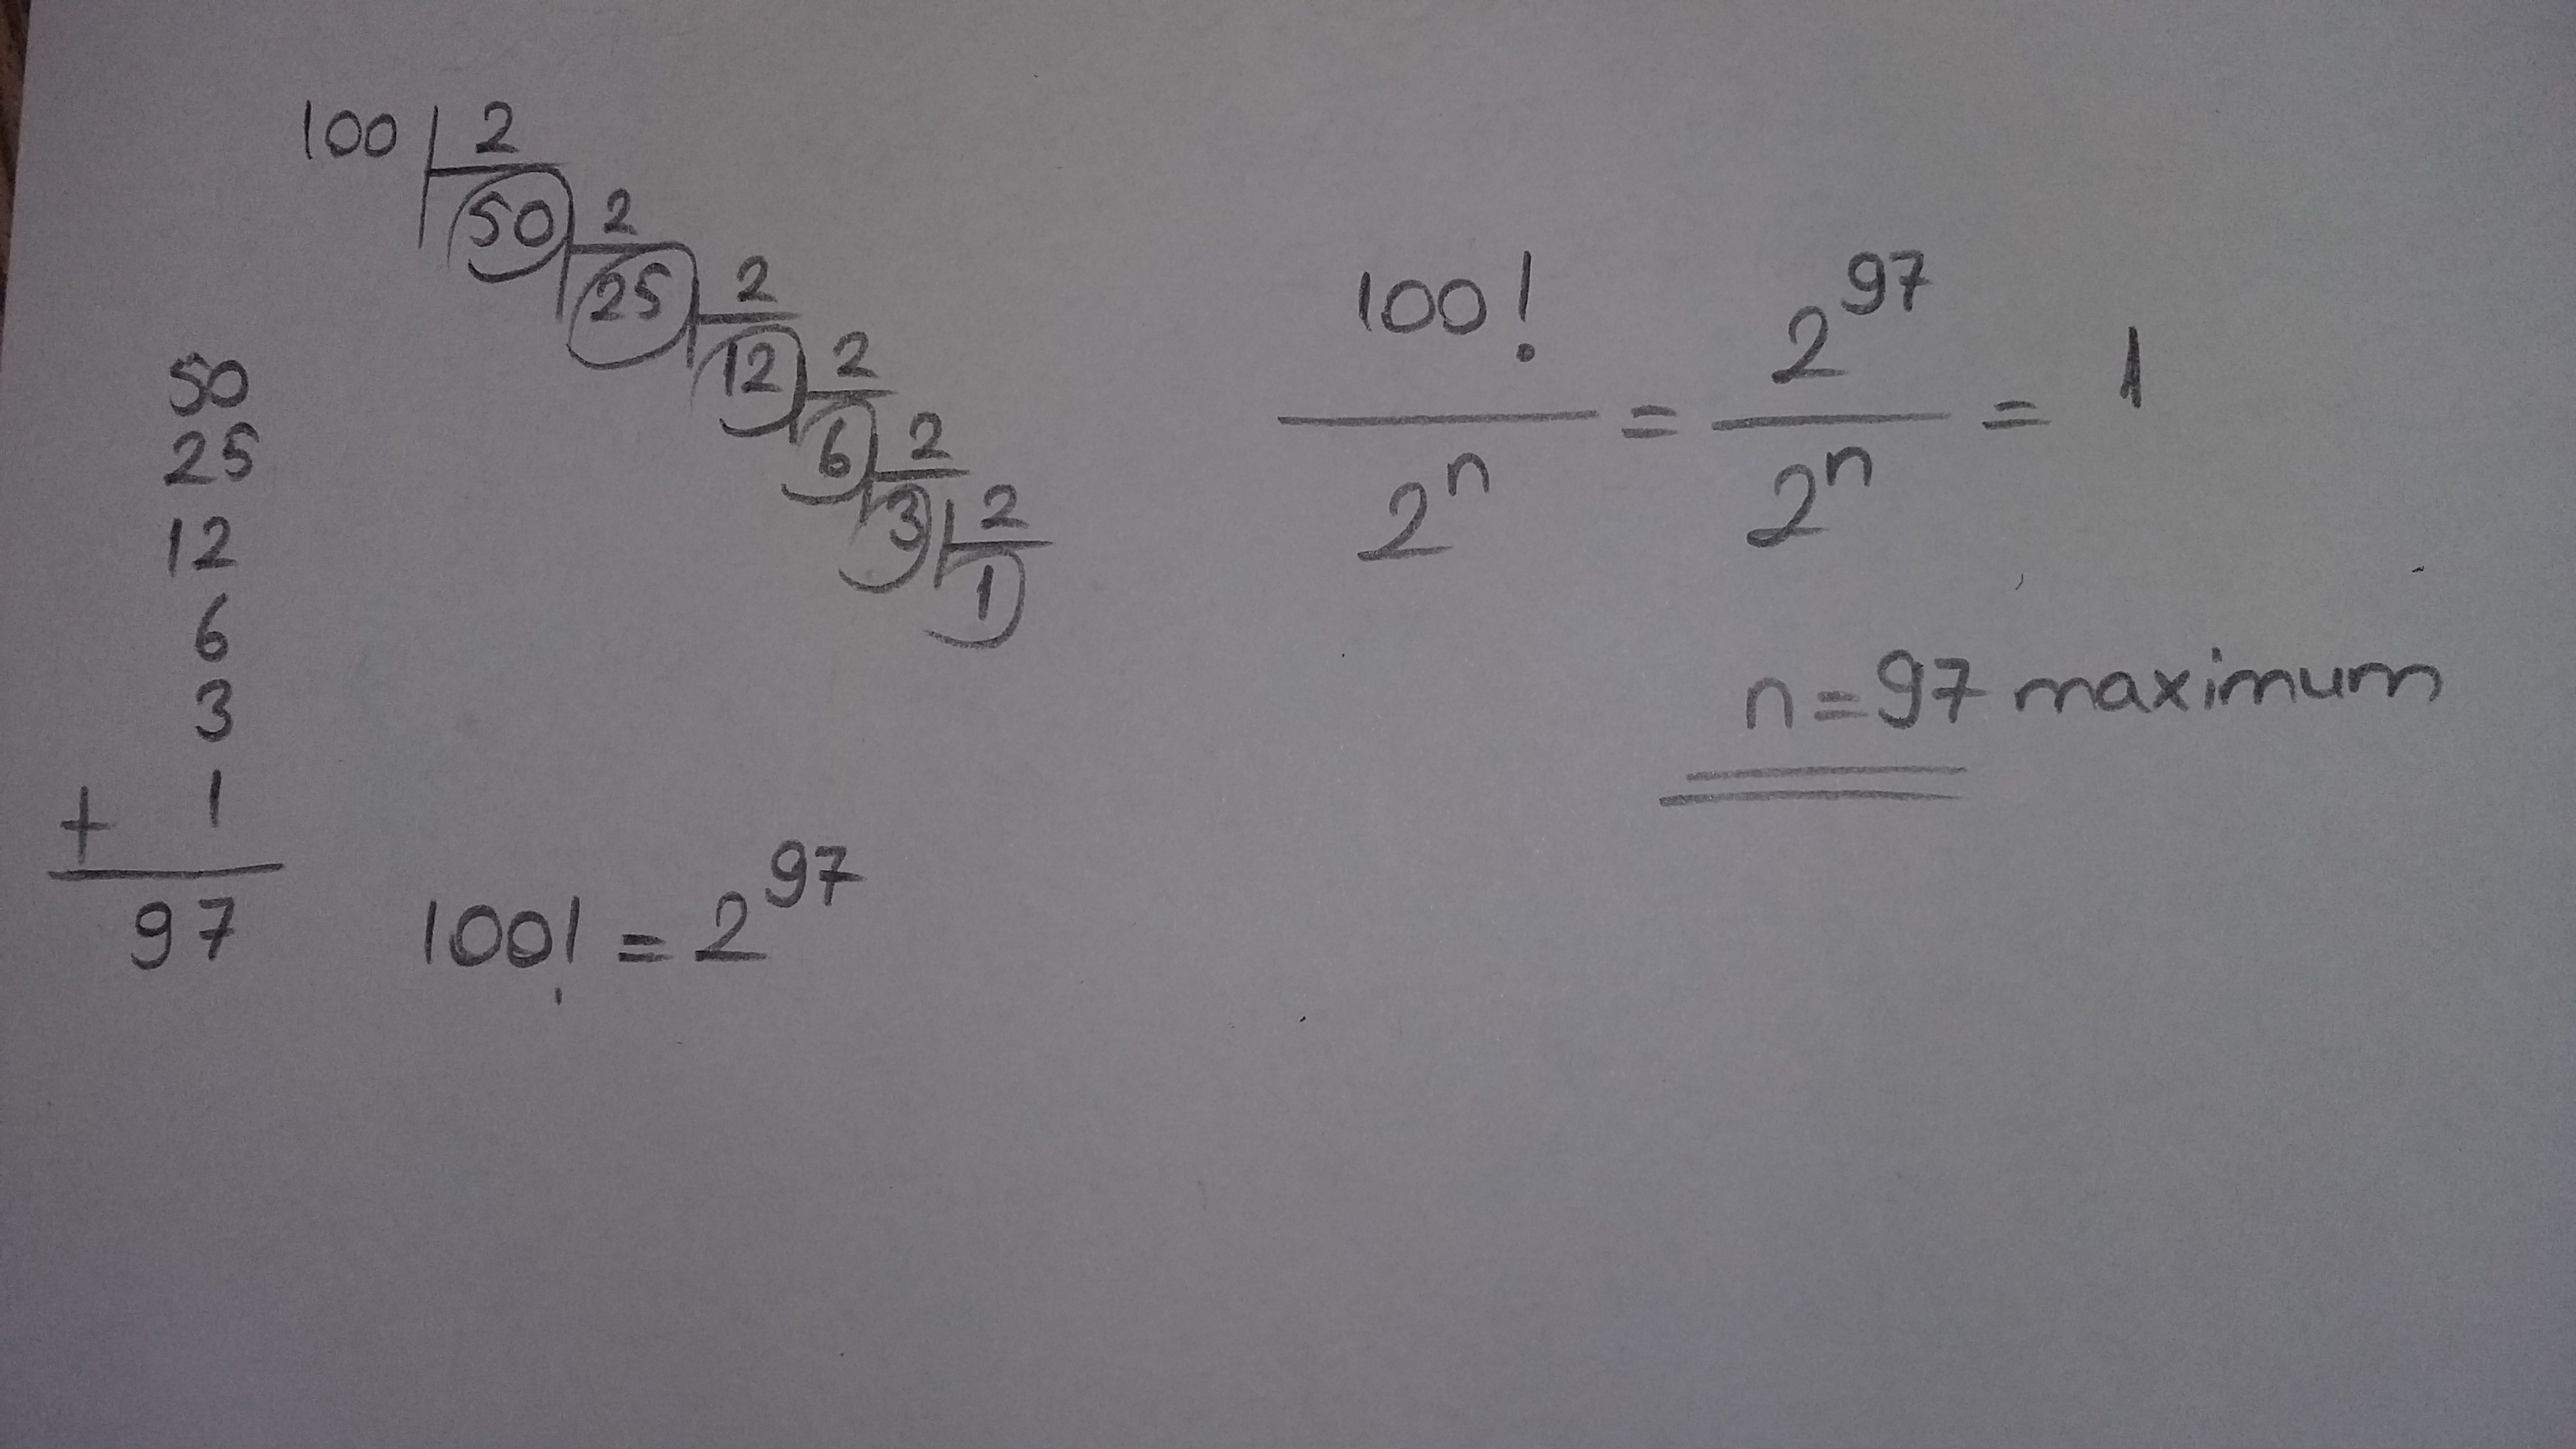 100 | 2
50 | 2
25 | 2
12 | 2
6 | 2
3 | 2
1
50
25
12
6
3
+ 1
97
100! = 2^97
100! / 2^n = 2^97 / 2^n = 1
n = 97 maximum